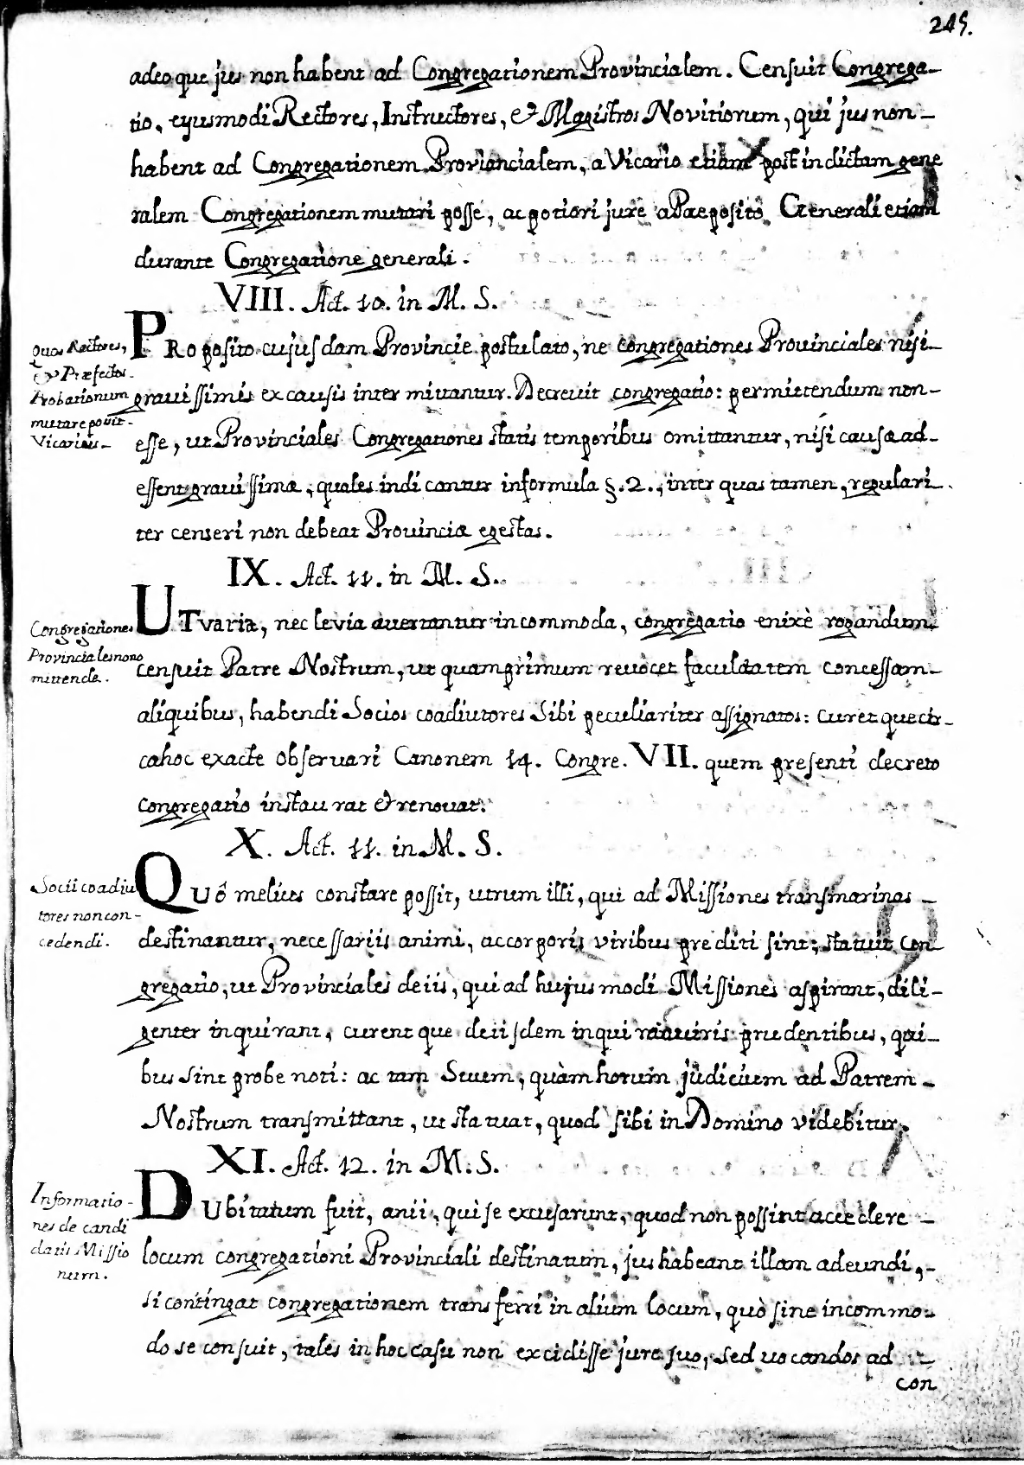 245.
adeo que jus non habent ad Congregationem Provincialem. Censuit Congrega-
tio, ejusmodi Rectores, Instructores, & Magistros Novitiorum, qui jus non-
habent ad Congregationem Provinncialem, a Vicario etiam post indictam gene
ralem Congregationem mutari posse, ac potiori jure a Præposito Generali etiam
durante Congregatione generali.
VIII. Act. 10. in M. S.
Quos Rectores,
& Præfectos
Probationum
mutare potuit
Vicarius-
PRoposito cujusdam Provincie postulato, ne congregationes Provinciales nisi-
gravissimis ex causis intermittantur. Decrevit congregatio: permittendum non-
esse, ut Provinciales Congregationes statis temporibus omittantur, nisi causa ad-
essent gravissimæ, quales indicantur in formula §. 2., inter quas tamen, regulari
ter censeri non debeat Provinciæ egestas.
IX. Act. 11. in M. S.
Congregationes
Provinciales non o
mittende.
UT varia, nec levia avertantur incommoda, congregatio enixè rogandum
censuit Patre Nostrum, ut quamprimum revocet facultatem concessam-
aliquibus, habendi Socios coadiutores sibi peculiariter assignatos: curet que cir-
ca hoc exacte observari Canonem 14. Congre. VII. quem presenti decreto
congregatio instaurat & renovat.
X. Act. 11. in M. S.
Socii coadiu
tores non con-
cedendi.
QUô melius constare possit, utrum illi, qui ad Missiones transmarinas-
destinantur, necessariis animi, ac corporis viribus prediti sint; statuit con-
gregatio, ut Provinciales de iis, qui ad hujusmodi Missiones aspirant, dili-
genter inquirant, curent que de iisdem inquiri a viris prudentibus, qui-
bus sint probe noti: ac tam Suum, quàm horum judicium ad Patrem-
Nostrum transmittant, ut statuat, quod sibi in Domino videbitur.
XI. Act. 12. in M. S.
Informatio-
nes de candi
datis Missio
num.
DUbitatum fuit, an ii, qui se excusarunt, quod non possint accedere-
locum congregationi Provinciali destinatum, jus habeant illam adeundi,-
si contingat congregationem transferri in alium locum, quò sine incommo-
do se consuit, tales in hoc casu non excidisse jure suo, sed vocandos ad
con